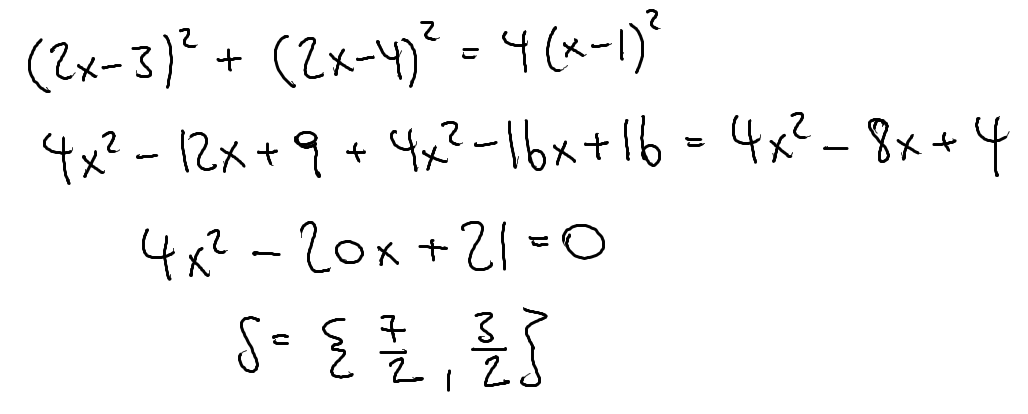 (2x-3)² + (2x-4)² = 4(x-1)²
4x² - 12x + 9 + 4x² - 16x + 16 = 4x² - 8x + 4
4x² - 20x + 21 = 0
S = { 7/2 , 3/2 }